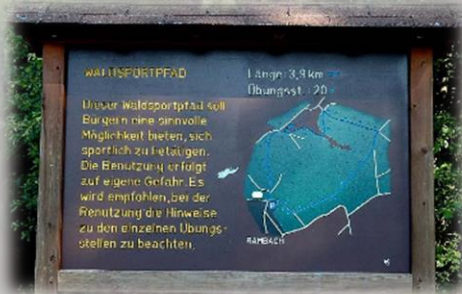 WALDSPORTPFAD
Länge: 3,9 km
Übungsst.: 20
Dieser Waldsportpfad soll
Bürgern eine sinnvolle
Möglichkeit bieten, sich
sportlich zu betätigen.
Die Benutzung erfolgt
auf eigene Gefahr. Es
wird empfohlen, bei der
Benutzung die Hinweise
zu den einzelnen Übungs-
stellen zu beachten.
RAMBACH